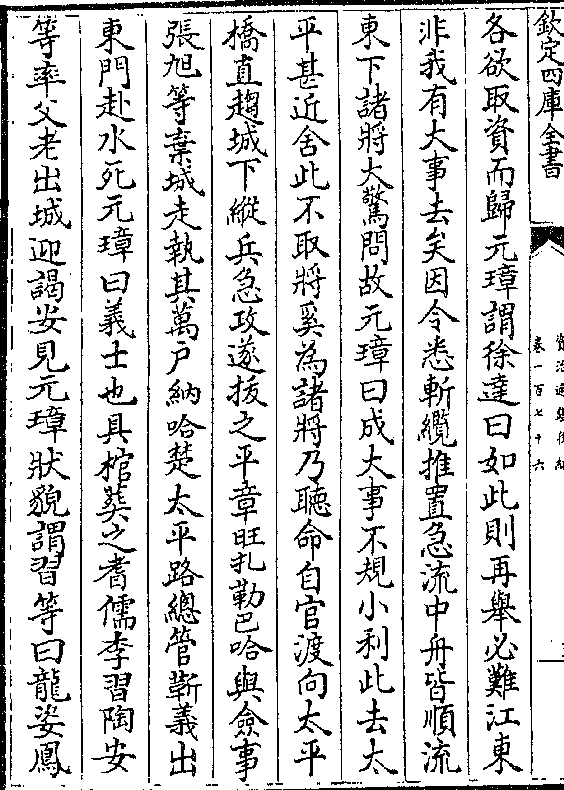 欽定四庫全書
資治通鑑後編
卷一百七十六
各欲取資而歸元璋謂徐達曰如此則再舉必難江東
非我有大事去矣因令悉斬纜推置急流中舟皆順流
東下諸將大驚問故元璋曰成大事不規小利此去太
平甚近舍此不取將奚為諸將乃聽命自官渡向太平
橋直趨城下縱兵急攻遂拔之平章旺扎勒巴哈與僉事
張旭等棄城走執其萬户納哈楚太平路總管靳義出
東門赴水死元璋曰義士也具棺葬之耆儒李習陶安
等率父老出城迎謁安見元璋狀貌謂習等曰龍姿鳳